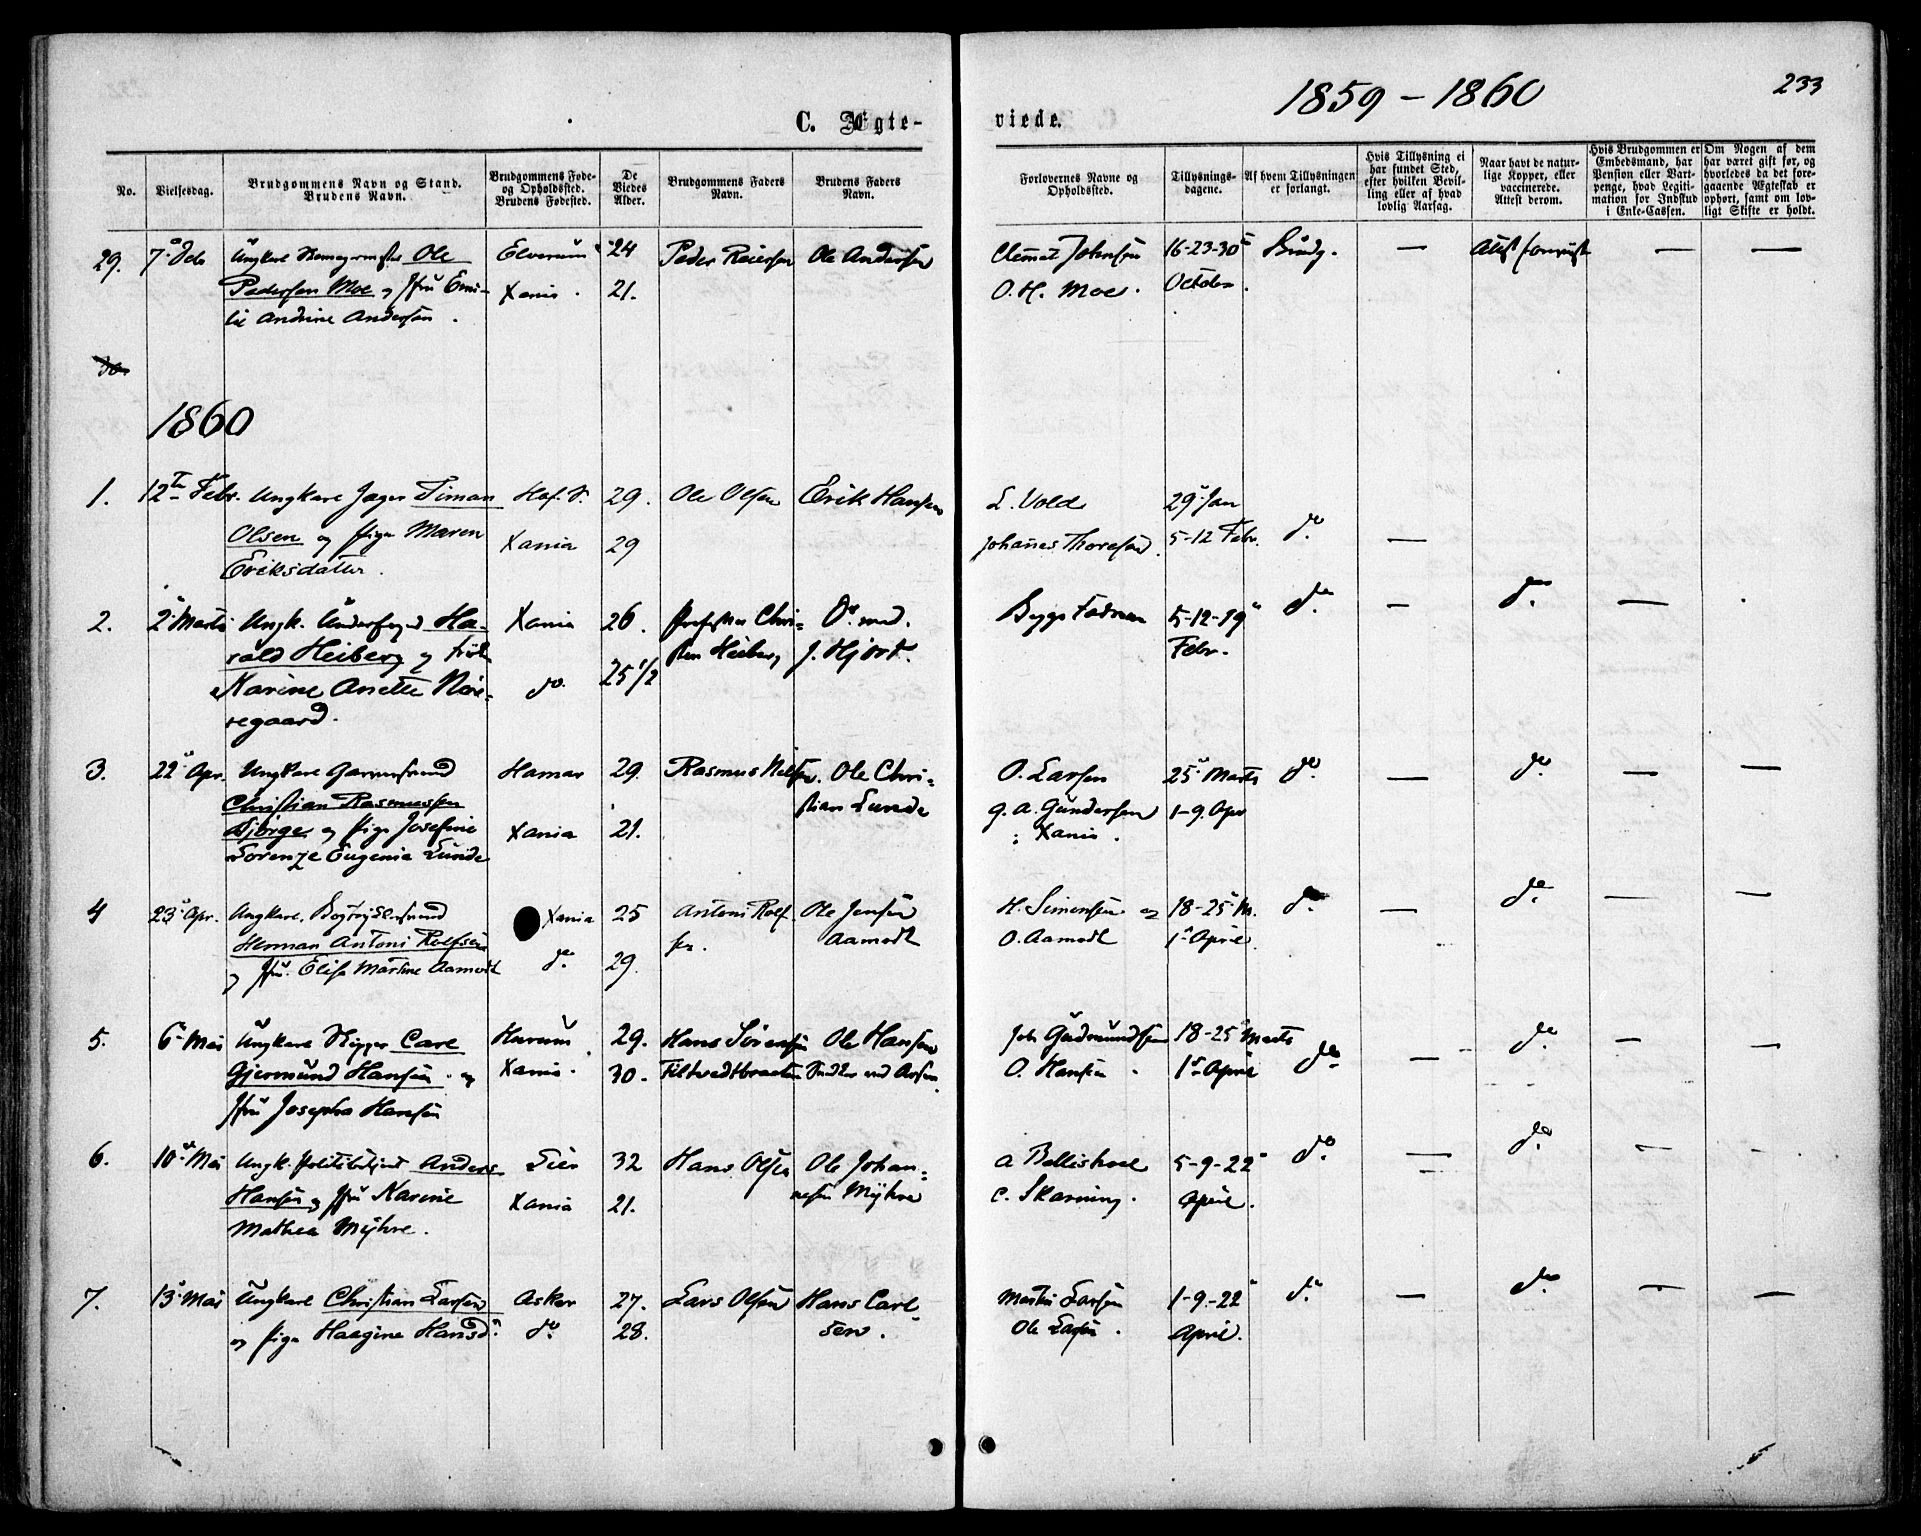 1859 - 1860
233
C. Ægte-
viede.
No.
Vielsesdag.
Brudgommens Navn og Stand.
Brudens Navn.
Brudgommens Føde-
og Opholdssted.
Brudens Fødested.
De
Viedes
Alder.
Brudgommens Faders
Navn.
Brudens Faders
Navn.
Forlovernes Navne og
Opholdssted.
Tillysnings-
dagene.
Af hvem Tillysningen
er forlangt.
Hvis Tillysning ei
har fundet Sted,
efter hvilken Bevil-
ling eller af hvad
lovlig Aarsag.
Naar havt de natur-
lige Kopper, eller
vaccinerede.
Attest derom.
Hvis Brudgommen er
Embedsmand, har
Pension eller Vart-
penge, hvad Legiti-
mation for Indskud
i Enke-Cassen.
Om Nogen af dem
har været gift før, og
hvorledes da det fore-
gaaende Ægteskab er
ophørt, samt om lov-
ligt Skifte er holdt.
29. Ungkarl Ole Elverum 24 Peder Reiersen Ole Andersen Clemet Johnsen 16-23-30 — — —
Pedersen Moe og Jfru Emi- Xania. 21. O. H. Moe. October
lie Andrine Andersen.
30.
1860
1. 12te Febr. Ungkarl Jager Timan 29. Ole Olsen Erik Hansen L. Vold 29 Jan
Olsen og Pige Maren Xania 29 Johannes Thoresen. 5-12 Febr. do. —
Eriksdatter.
2. 2 Marts Ungk. Ha- Xania 26. Professor Chri- Dr. med. 5-12-19 do. — do. —
rald Heiberg og sten Heiberg J. Hjort. Febr.
Karine Anette Nør- do. 25 1/2
regaard.
3. 22 Apr. Ungkarl Garversvend Hamar 29. Rasmus Nilsen. Ole Chri- O. Larsen 25 Marts do. — do. — —
Christian Rasmussen stian Lunde G. A. Gundersen 1-9. Apr
Bjørge og Pige Josefine Xania 21. Xania.
Lorenze Eugenia Lunde
4 23 Apr. Ungkarl. Bogtrykkersvend Xania 25 Antoni Rolf- Ole Jensen H. Simensen og 18-25 M. do. — do. — —
Herman Antoni Rolfsen sen. Aamodt O. Aamodt 1 April
og Jfru. Elise Martine Aamodt do. 29.
5. 6 Mai Ungkarl Skipper Carl Hurum 29. Hans Sørensen Ole Hansen Joh Gudmundsen 18-25 Marts do. — do. — —
Gjermund Hansen og Xania. 30. Filtvedtbraaten O. Hansen 1 April
Jfru Josepha Hansen
6. 10 Mai Ungk. Politibetjent Anders Lier 32 Hans Olsen Ole Johan- A Bellishove 5-9-22 do. — do. — —
Hansen og Jfru Karine Xania 21. nesen Myhre C. Skarning. April.
Mathea Myhre.
7. 13 Mai Ungkarl Christian Larsen Asker 27. Lars Olsen Hans Carl- Martin Larsen 1-9-22 do. — do. — —
og Pige Haagine Hansd. do. 28. sen. Ole Larsen. April.